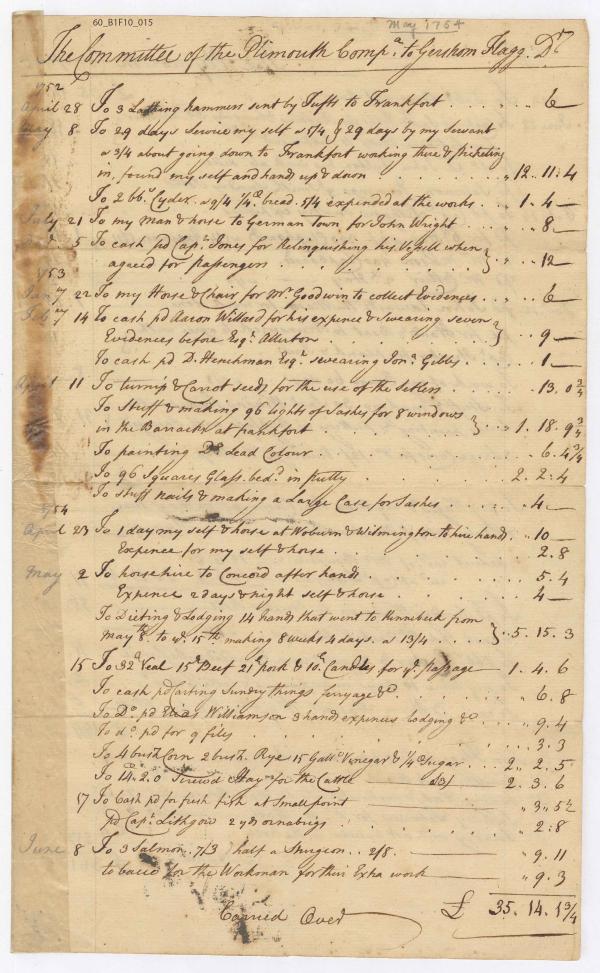 60_B1F10_015
May 1754
The Committee of the Plimouth Comp.a to Gershom Flagg. Dr
1752
April 28 To 3 Lathing hammers sent by Tufts to Frankfort . . . . " " 6 —
May 8 To 29 days Service my self a 5/4, & 29 days by my Servant
a 3/4 about going down to Frankfort working there & Picketing
in, found my self and hands up & down . . . . " 12 . 11 : 4
To 2 bbs Cyder. a 9/4 1/4 C. bread. 5/4 expended at the works . . 1 . 4 —
July 21 To my Man & horse to German Town, for John Wright . . . " 8 —
5 To cash pd Cap.n Jones for Relinquishing his Vessell when
agreed for passengers . . . . } . " . 12 —
1753
Jan.y 22 To my Horse & Chair for Mr Goodwin to collect Evidences . . " 6 —
Feb.y 14 To cash pd Aaron Willard for his expence & Swearing seven
Evidences before Esq.r Allerton . . . . } . " 9 —
To cash pd D. Henchman Esq.r swearing Jon.a Gibbs . . . " 1 —
April 11 To turnip & Carrot seeds for the use of the Setlers . . . 13 . 0 3/4
To Stuff & making 96 lights of Sashes for 8 windows
in the Barracks at frankfort . . . . } . " 1 . 18 . 9 3/4
To painting Do Lead Colour . . . . 6 . 4 3/4
To 96 Squares Glass. bed.d in Putty . . . . 2 . 2 : 4
To stuff nails & making a Large Case for Sashes . . . " 4 —
1754
April 23 To 1 day my self & horse at Woburn & Wilmington to hire hands . " 10 —
Expence for my self & horse . . . . 2 . 8
May 2 To horse hire to Concord after hands . . . . 5 . 4
Expence 2 days & night self & horse . . . . 4 —
To Dieting & Lodging 14 hands that went to Kennebeck from
May 8th to ye 15th making 8 weeks 4 days. a 13/4 . . . . } . 5 . 15 . 3
15 To 32 Veal 15 Beef 21 pork & 10 Candles for ye passage — 1 . 4 . 6
To cash pd Carting Sundry things ferryage &c . . . . " 6 . 8
To Do pd Elias Williamson 3 hands expences Lodging &c . . . " 9 . 4
To do pd for 9 files . . . . " 3 . 3
To 4 bush Corn 2 bush. Rye 15 Gall.s Vinegar & 1/4 C Sugar . . 2 . 2 . 5
To 14 . 2 . 0 Screw'd Hay for the Cattle — a 3/ — 2 . 3 . 6
17 To Cash pd for fresh fish at Small point — " 3 . 5 1/2
pd Cap.n Lithgow 2 yds ornabrigs . . . . " 2 : 8
June 8 To 3 Salmon . 7/3 half a Sturgeon . . 2/8 . — " 9 . 11
to bacco for the Workmen for their Extra work — " 9 . 3
Carried Over £ 35 . 14 . 1 3/4